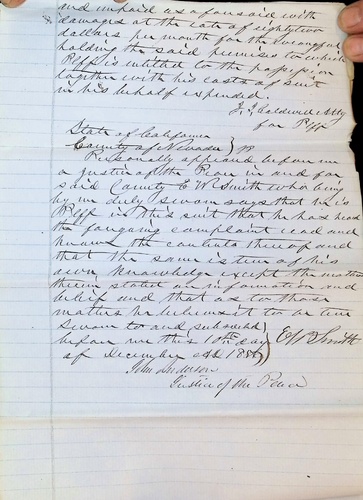 and unpaid as aforesaid with
damages at the rate of eighty two
dollars per month for the wrongful
holding the said premises to which
Plff is intitled to the possession
together with his costs of suit
in his behalf expended.
J. Caldwell Atty
for Plff
State of California
County of Nevada } SS
Personally appeared before me
a justice of the Peace in and for
said County E W Smith who being
by me duly sworn says that he is
Plff in this suit that he has heard
the foregoing complaint read and
knows the contents thereof and
that the same is true of his
own knowledge except the matters
therein stated as information and
belief and that as to those
matters he believes it to be true
Sworn to and Subscribed
before me this 10th day } E W Smith
of December AD
John Anderson
Justice of the Peace